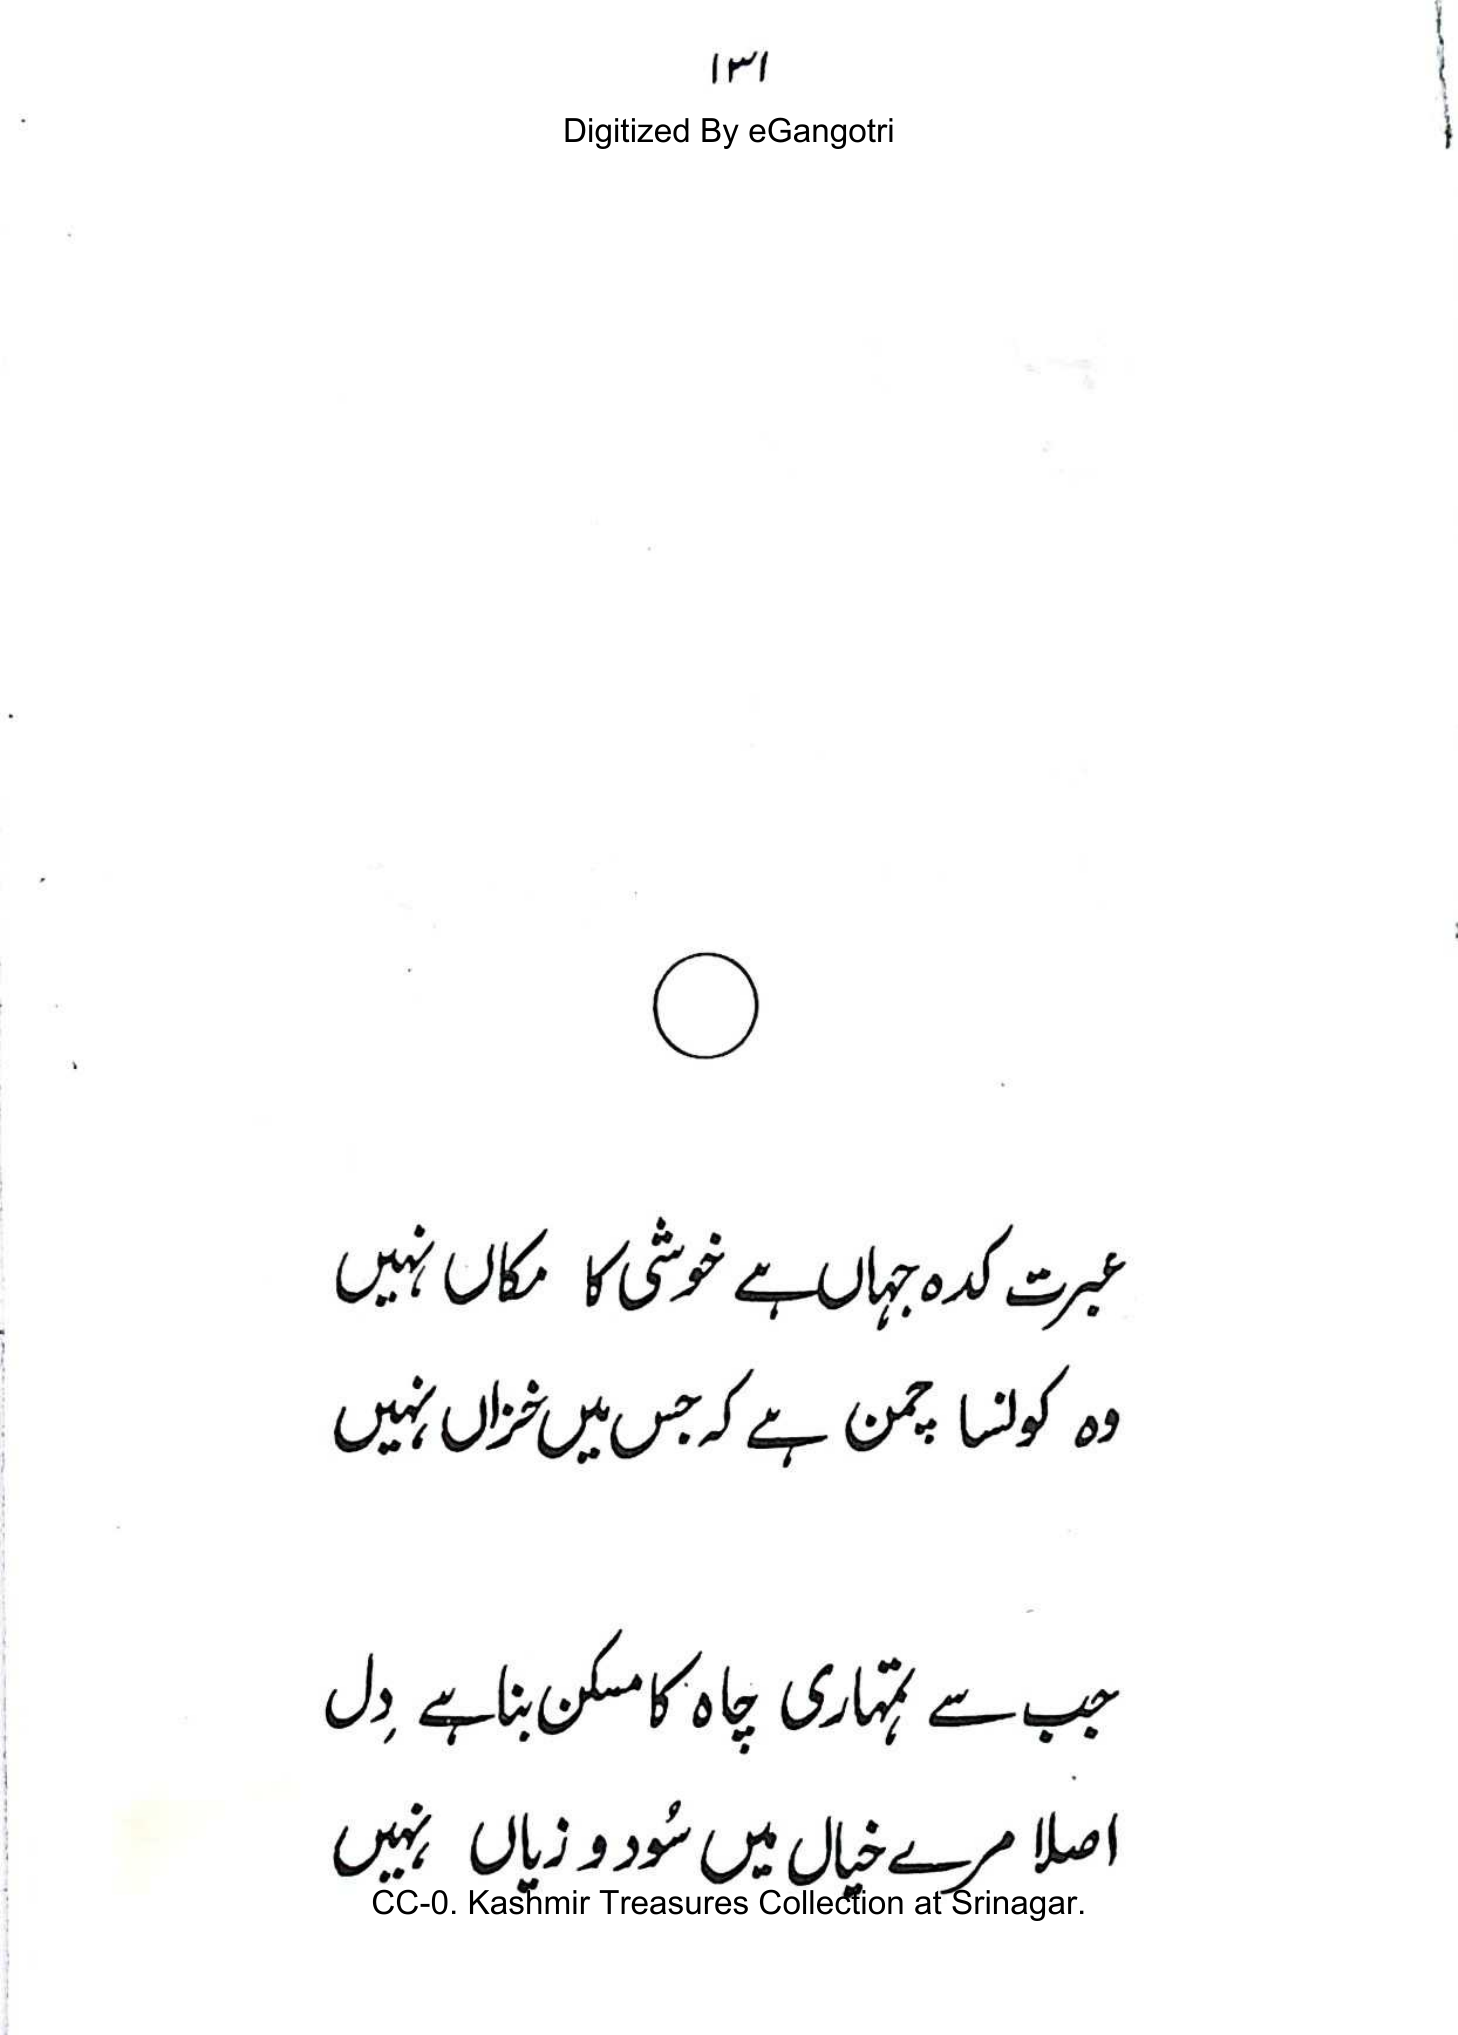 ۱۳۱
Digitized By eGangotri
عبرت کدہ جہاں ہے خوشی کا مکاں نہیں
وہ کونسا چمن ہے کہ جس میں خزاں نہیں
جب سے تمہاری چاہ کا مسکن بنا ہے دِل
اصلا مرے خیال میں سُود و زیاں نہیں
CC-0. Kashmir Treasures Collection at Srinagar.